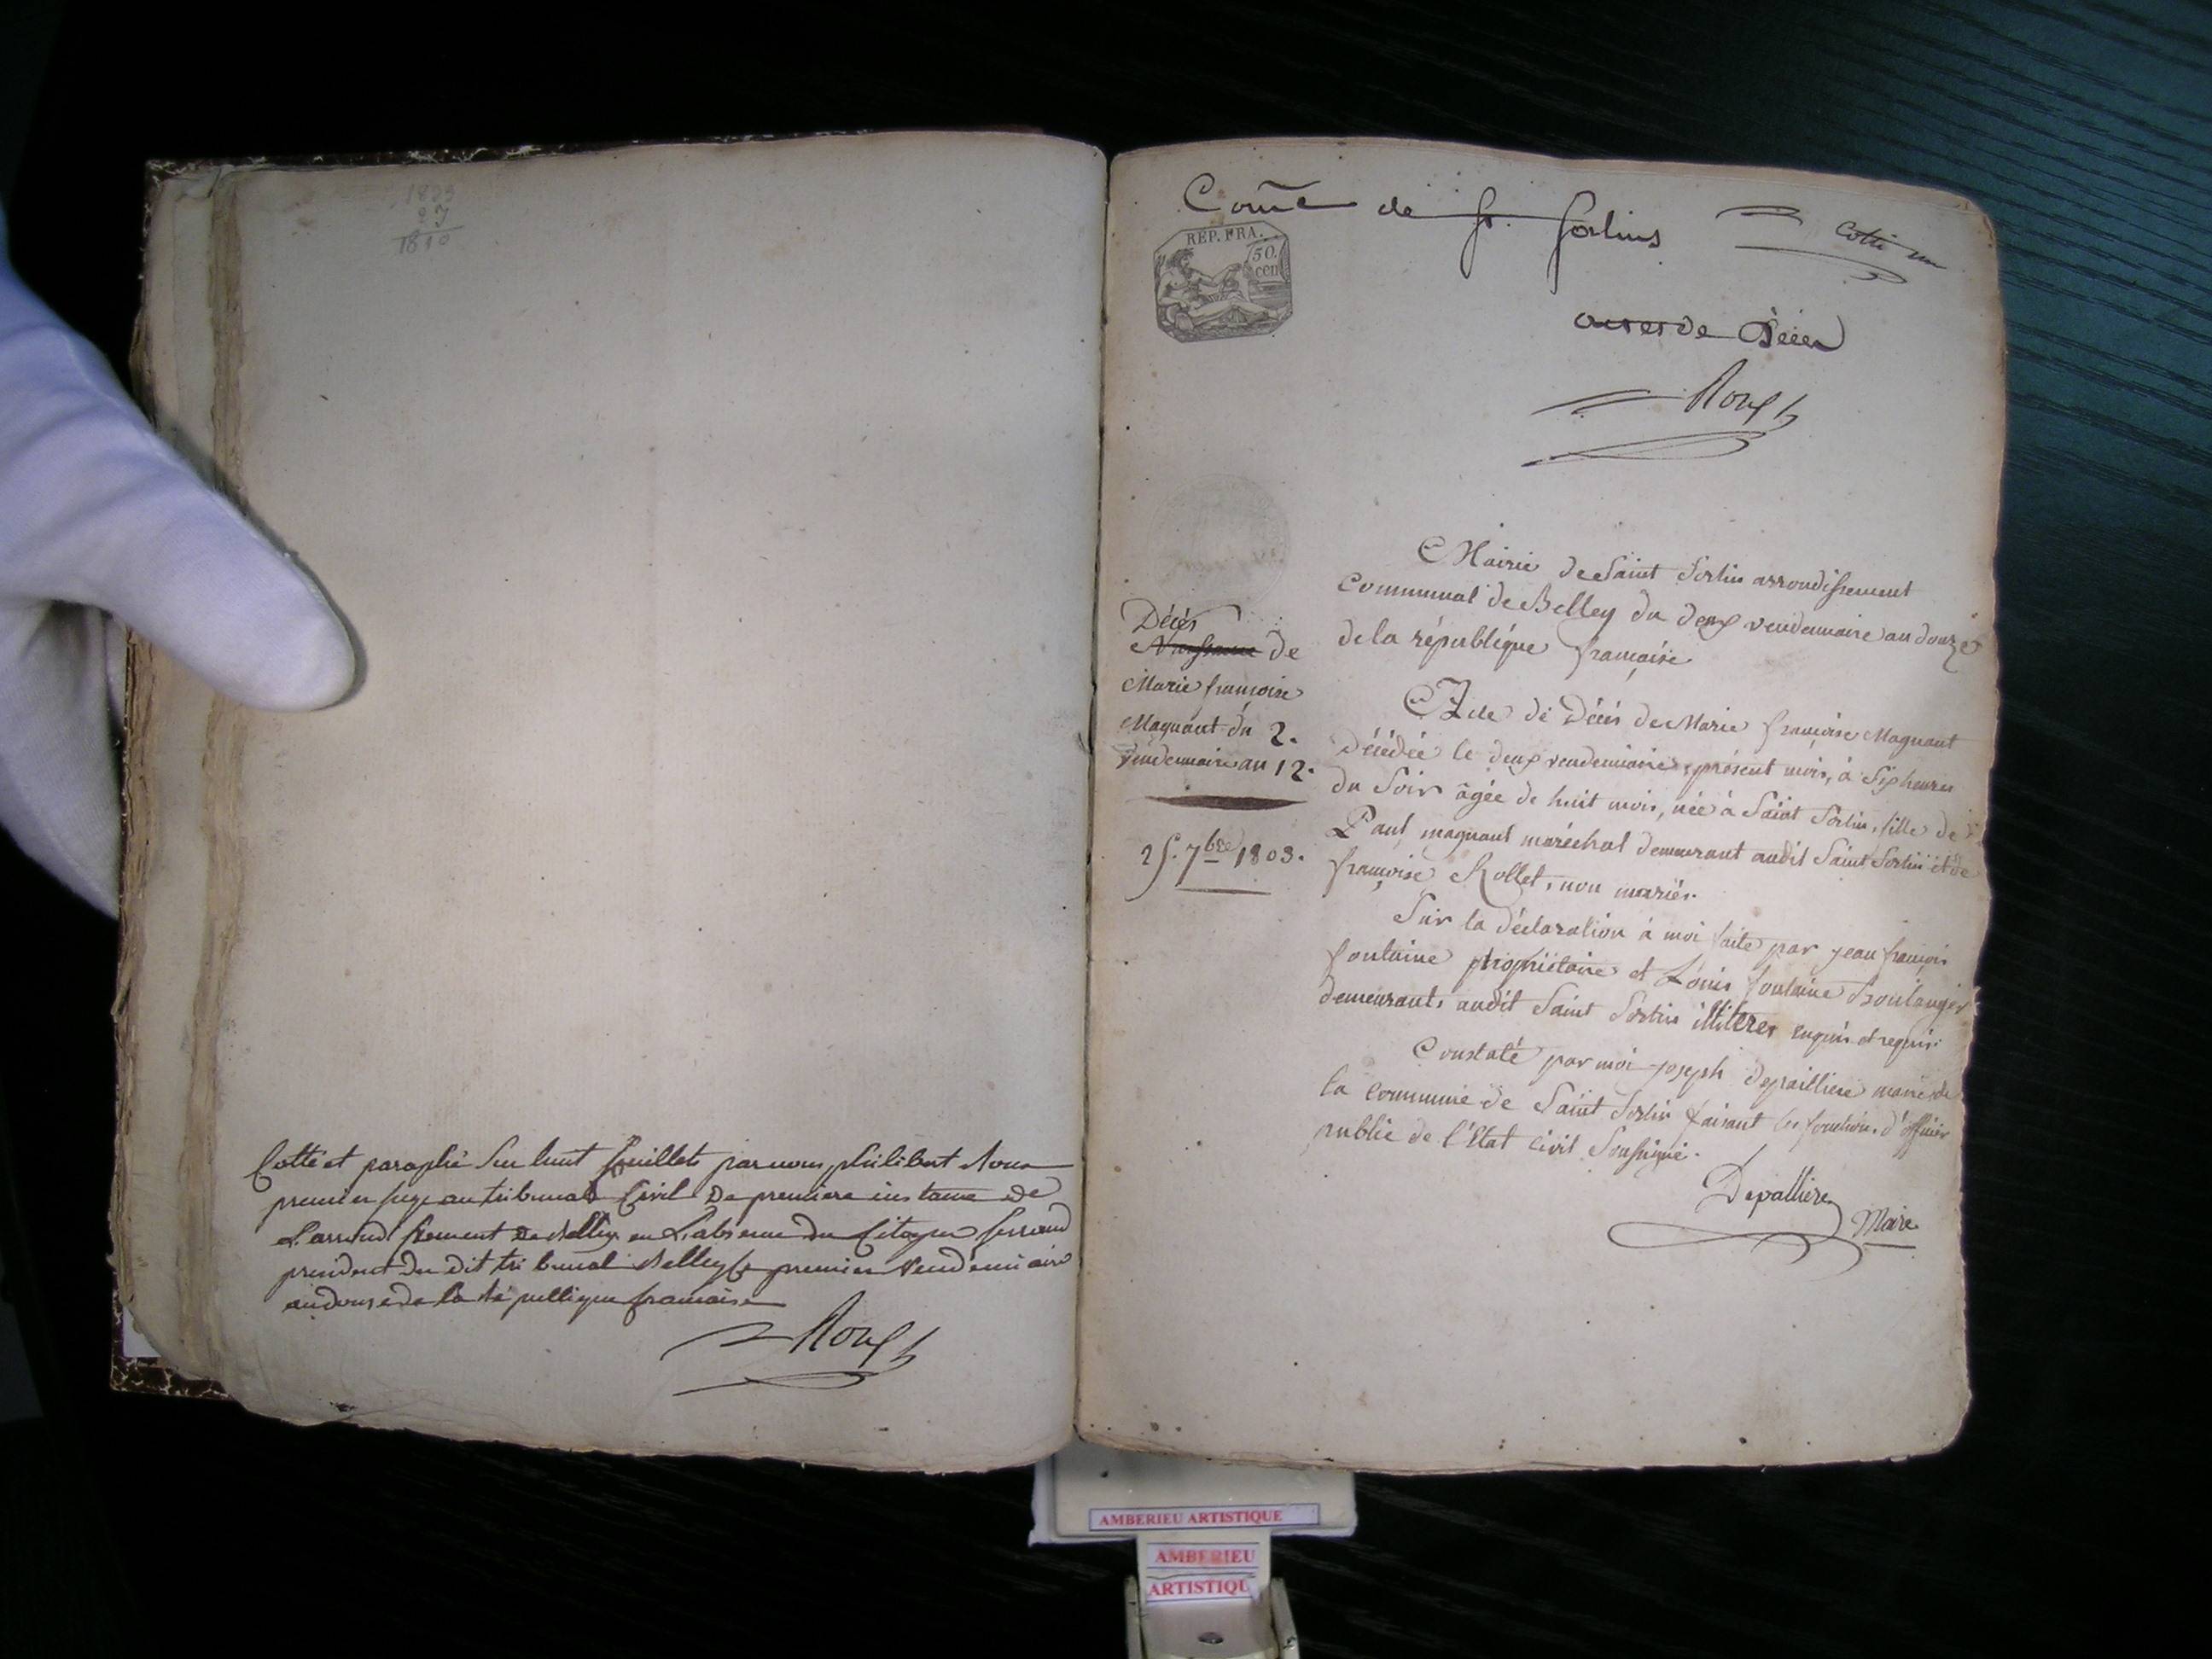 1833
23
1810
Cotté et paraphé sur huit feuillets par nous philibert Roux
premier juge au tribunal Civil de premiere instance de
L'arrondissement de Belley en L'absence du Citoyen
president du dit tribunal Belley le premier Vendémiaire
an douze de la république française
Roux
Comˉe de St. Sorlins
Cotté un
REP. FRA.
50.
cen
actes de Décès
Roux
Mairie de Saint Sorlin arrondissement
Communal de Belley du deux vendemiaire an douze
de la république française.
Décès
Naissance de
Marie françoise
Magnant du 2.
vendemiaire an 12.
25. 7bre 1803.
Acte de Décès de Marie françoise Magnant
décédée le deux vendemiaire, présent mois, à six heures
du Soir âgée de huit mois, née à Saint Sorlin, fille de
Paul magnant maréchal demeurant audit Saint Sorlin et de
françoise Rollet, non mariés.
Sur la déclaration à moi faite par jean françois
fontaine propriétaire et Louis fontaine Boulanger
demeurants audit Saint Sorlin illiteres enquis et requis.
Constaté par moi joseph depailliere maire de
la commune de Saint Sorlin faisant les fonctions d'officier
public de l'Etat civil Soussigné.
Depalliere
Maire
AMBERIEU ARTISTIQUE
AMBERIEU
ARTISTIQU